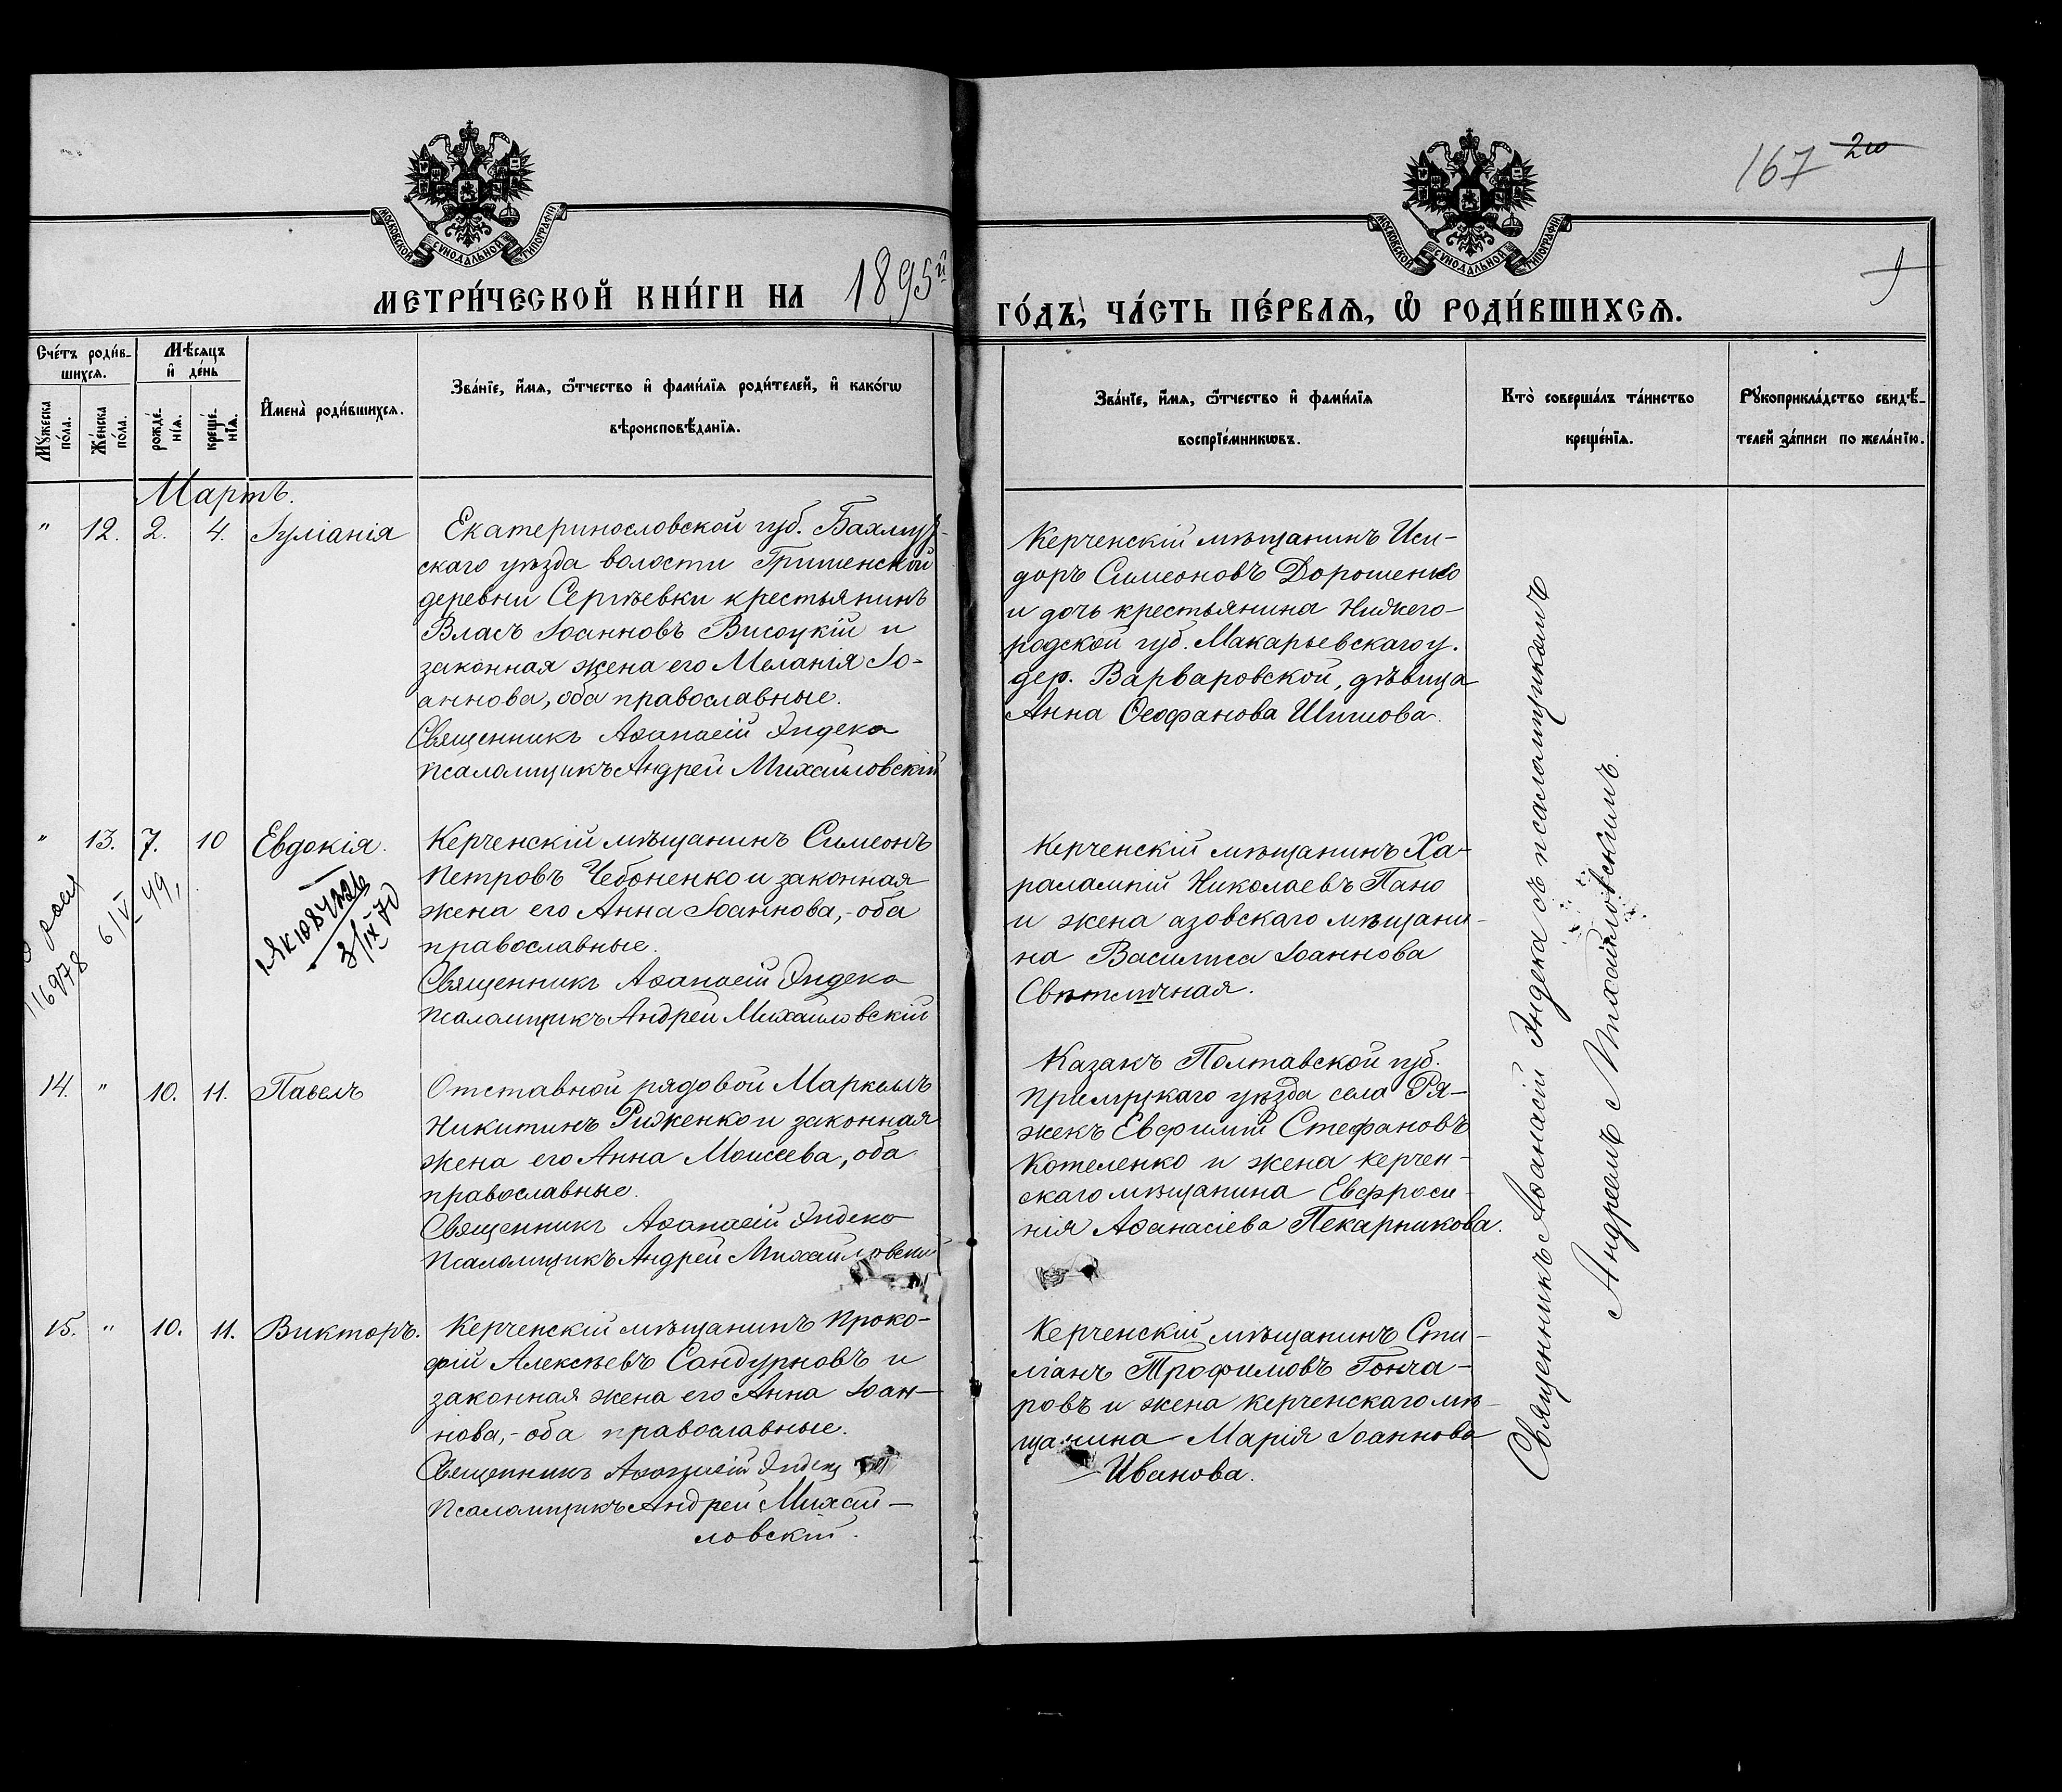 167 20
9
МОСКОВСКОЙ СѴНОДАЛЬНОЙ ТИПОГРАФІИ
МОСКОВСКОЙ СѴНОДАЛЬНОЙ ТИПОГРАФІИ
МЕТРИ́ЧЕСКОЙ КНИ́ГИ НА 1895й
ГО́ДЪ, ЧА́СТЬ ПЕ́РВАѦ, Ѽ РОДИ́ВШИХСѦ.
Сче́тъ роди́в-
шихсѧ.
Мѣ́сѧцъ
и҆ де́нь
Мꙋ́жеска
по́ла.
Же́нска
по́ла.
рожде́-
нїѧ.
креще́-
нїѧ.
И҆мена̀ роди́вшихсѧ.
Зва́нїе, и҆́мѧ, ѻ҆́тчество и҆ фами́лїѧ роди́телей, и҆ како́гѡ
вѣроисповѣ́данїѧ.
Зва́нїе, и҆́мѧ, ѻ҆́тчество и҆ фами́лїѧ
воспрїе́мникѡвъ.
Кто̀ соверша́лъ та́инство
креще́нїѧ.
Рꙋкоприкла́дство свидѣ́-
телей за́писи по жела́нїю.
Мартъ.
" 12. 2. 4. Іуліанія
Екатеринословской губ. Бахмут-
скаго уѣзда волости Гришенской
деревни Сергѣевки крестьянинъ
Власъ Іоанновъ Висоцкій и
законная жена его Меланія Іо-
аннова, оба православные.
Священникъ Аѳанасій Индека
Псаломщикъ Андрей Михайловскій
Керченскій мѣщанинъ Иси-
доръ Симеоновъ Дорошенко
и дочь крестьянина Нижего-
родской губ. Макарьевскаго у.
дер. Варваровской, дѣвица
Анна Ѳеофанова Шишова.
" 13. 7. 10 Евдокія.
116978
6/V 49,
3/IX 70
Керченскій мѣщанинъ Симеонъ
Петровъ Чебоненко и законная
жена его Анна Іоаннова,- оба
православные.
Священникъ Аѳанасій Индека
Псаломщикъ Андрей Михайловскій
Керченскій мѣщанинъ Ха-
ралампій Николаевъ Пано
и жена азовскаго мѣщани-
на Василиса Іоаннова
Свѣтличная.
14. " 10. 11. Павелъ
Отставной рядовой Маркелъ
Никитинъ Риженко и законная
жена его Анна Моисеева, оба
православные.
Священникъ Аѳанасій Индека
Псаломщикъ Андрей Михайловскій
Казакъ Полтавской губ.
Прилуцкаго уѣзда села Ря-
жекъ Евфимій Стефановъ
Котеленко и жена керчен-
скаго мѣщанина Евфроси-
нія Аѳанасіева Пекарникова.
15. " 10. 11. Викторъ.
Керченскій мѣщанинъ Проко-
фій Алексѣевъ Сандурновъ и
законная жена его Анна Іоан-
нова,- оба православные.
Священникъ Аѳанасій Индека
Псаломщикъ Андрей Михай-
ловскій.
Керченскій мѣщанинъ Сти-
ліанъ Трофимовъ Гонча-
ровъ и жена керченскаго мѣ-
щанина Марія Іоаннова
Иванова.
Священникъ Аѳанасій Индека съ псаломщикомъ
Андреемъ Михайловскимъ.